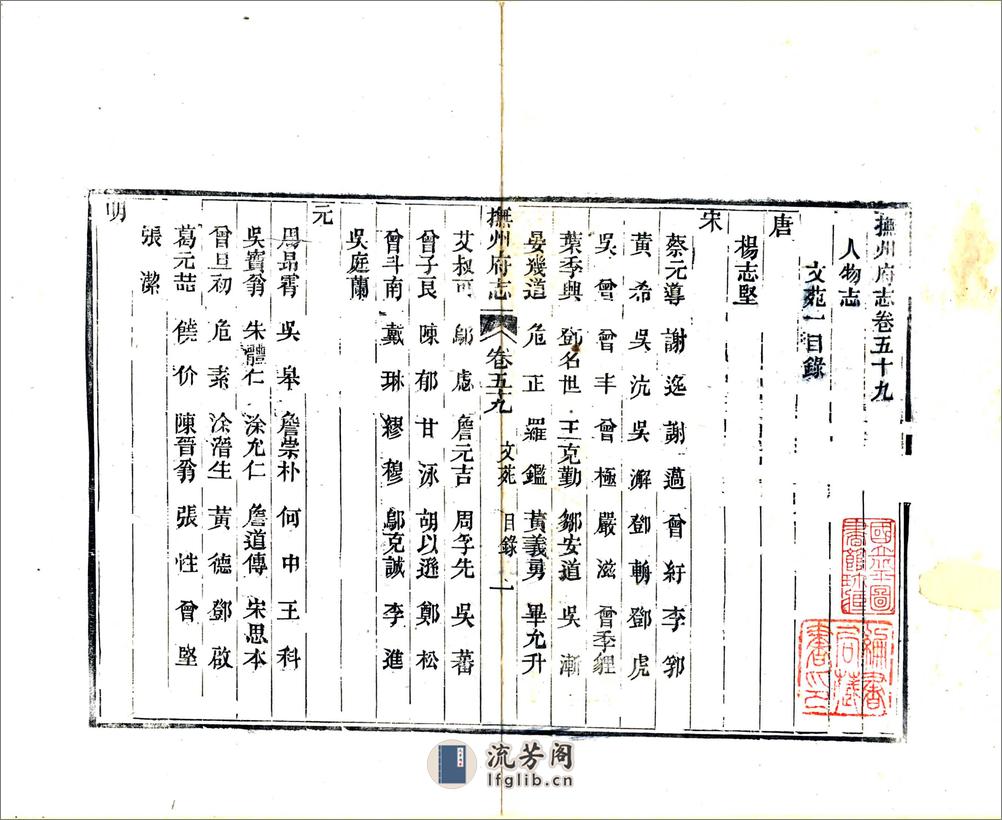 撫州府志卷五十九
人物志
文苑一目錄
唐
楊志堅
宋
蔡元導 謝逸 謝薖 曾紆 李郛
黃希 吳沆 吳澥 鄧柟 鄧虎
吳曾 曾丰 曾極 嚴滋 曾季貍
葉季興 鄧名世 王克勤 鄒安道 吳漸
晏幾道 危正 羅鑑 黃義勇 畢允升
撫州府志 卷五十九 文苑 目錄 一
艾叔可 鄔慮 詹元吉 周孚先 吳蕃
曾子良 陳郁 甘泳 胡以遜 鄭松
曾斗南 戴琳 繆穆 鄔克誠 李進
吳庭蘭
元
周昂霄 吳皋 詹崇朴 何中 王科
吳寶翁 朱體仁 涂允仁 詹道傳 宋思本
曾旦初 危素 涂溍生 黃德 鄧啟
葛元喆 饒价 陳晉翁 張性 曾堅
張潔
明
流芳阁
lfglib.cn